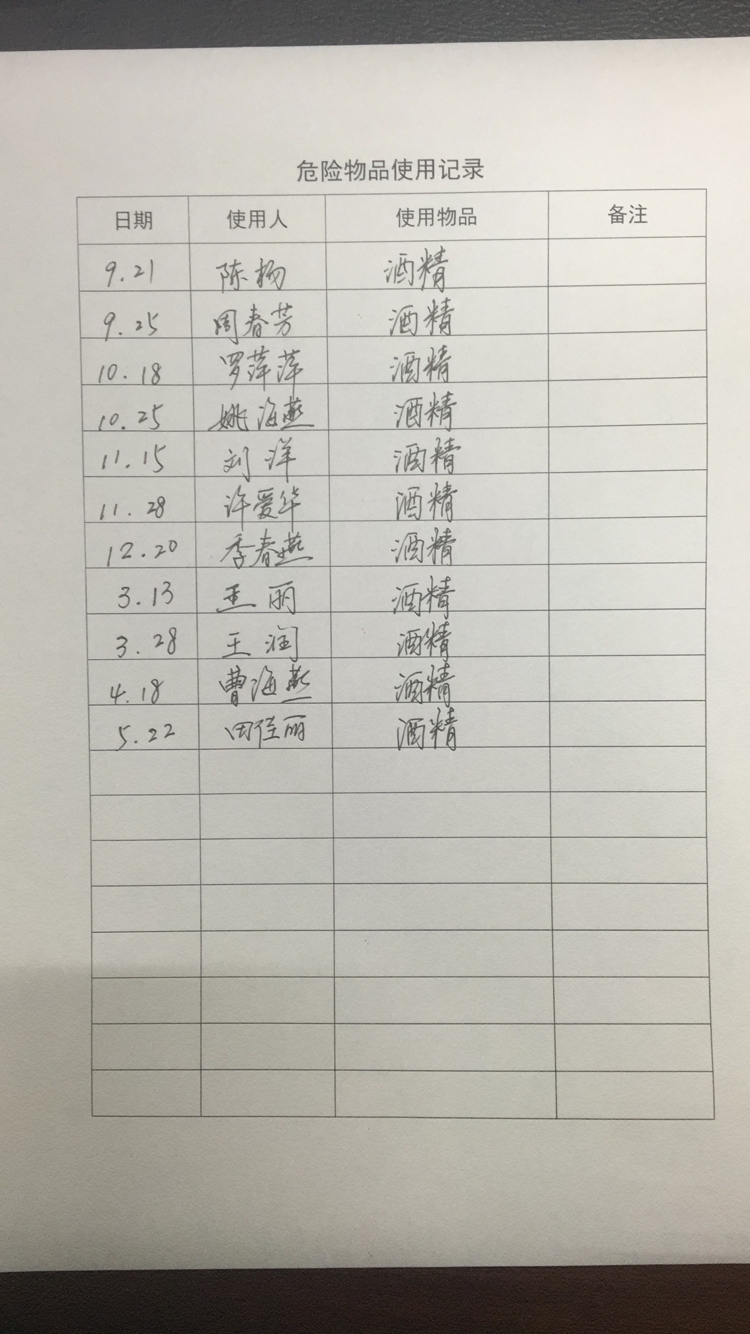 危险物品使用记录
日期 使用人 使用物品 备注
9.21 陈杨 酒精
9.25 周春芳 酒精
10.18 罗萍萍 酒精
10.25 姚海燕 酒精
11.15 刘洋 酒精
11.28 许爱华 酒精
12.20 季春燕 酒精
3.13 王丽 酒精
3.28 王润 酒精
4.18 曹海燕 酒精
5.22 田佳丽 酒精